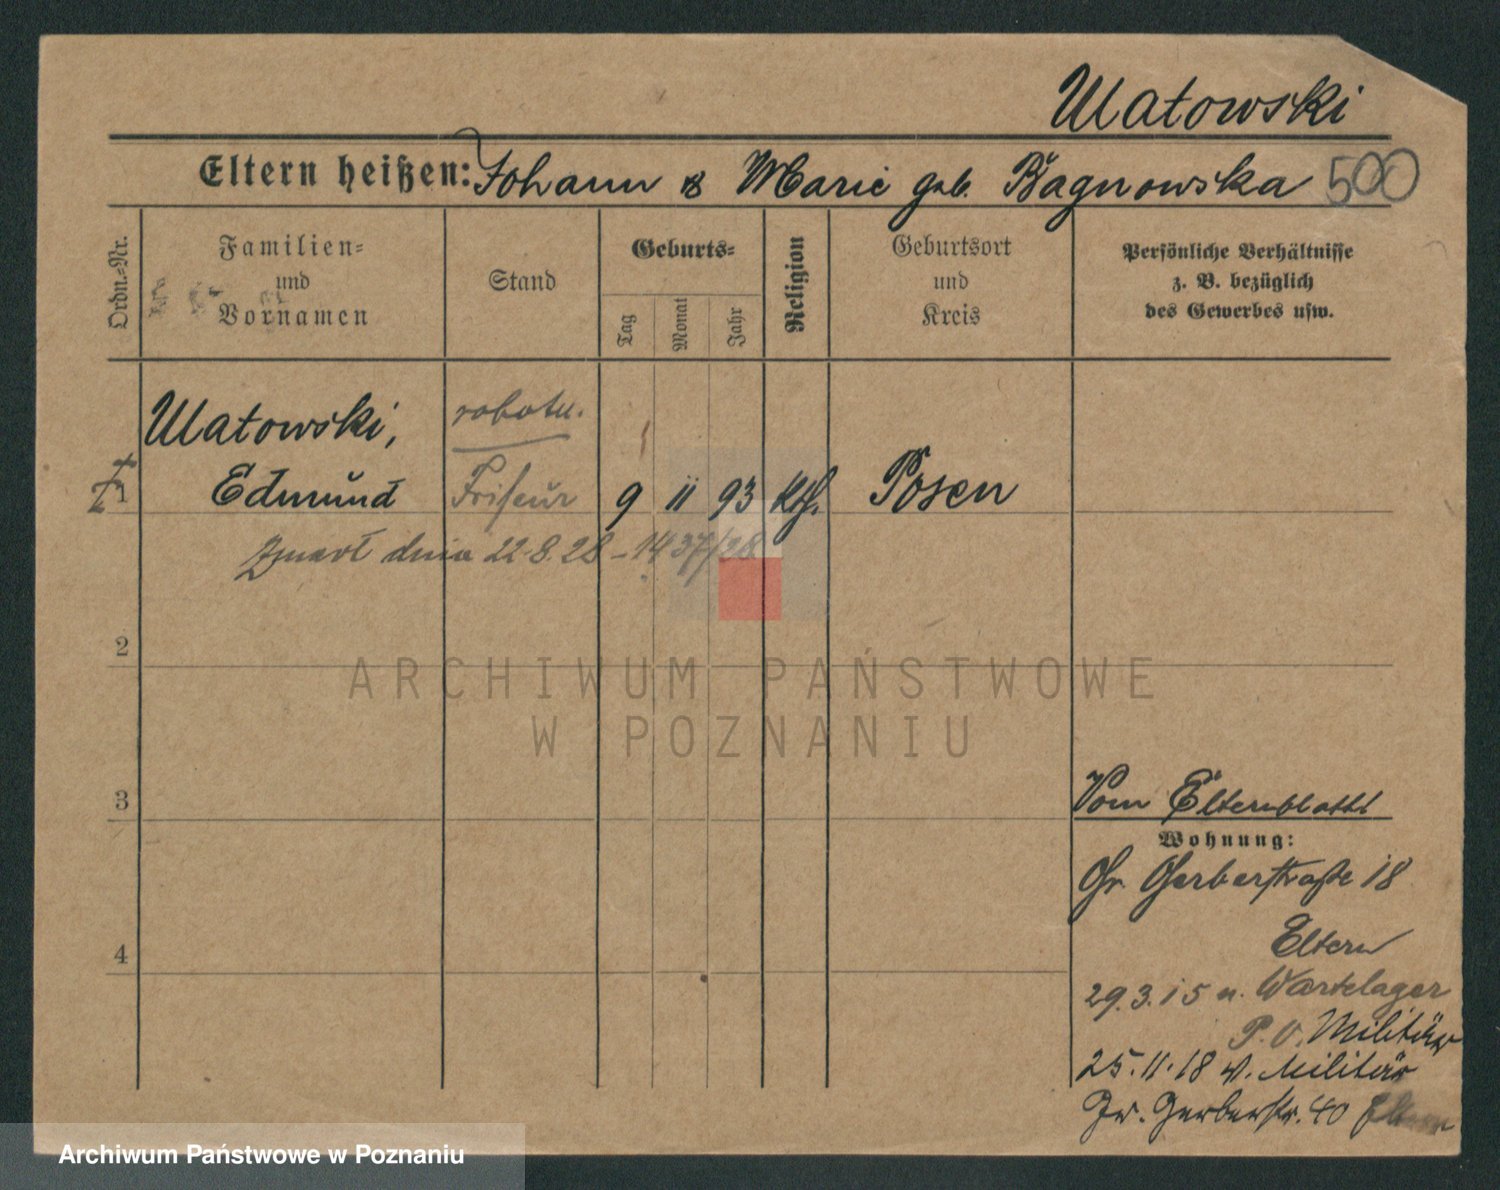 Ulatowski
Eltern heißen: Johann & Marie geb. Bagnowska 500
Ordn.=Nr.
Familien=
und
Vornamen
Stand
Geburts=
Tag
Monat
Jahr
Religion
Geburtsort
und
Kreis
Persönliche Verhältnisse
z. B. bezüglich
des Gewerbes usw.
Ulatowski, robotn.
1 Edmund Friseur 9 11 93 Kth. Posen
Zmarł dnia 22.8.28 – 1437/28
2
3
4
Vom Elternblatt
Wohnung:
Gr. Gerberstraße 18
Eltern
29.3.15 n. Wartelager
P. V. Militär
25.11.18 v. Militär
Gr. Gerberstr. 40 Eltern
ARCHIWUM PAŃSTWOWE
W POZNANIU
Archiwum Państwowe w Poznaniu